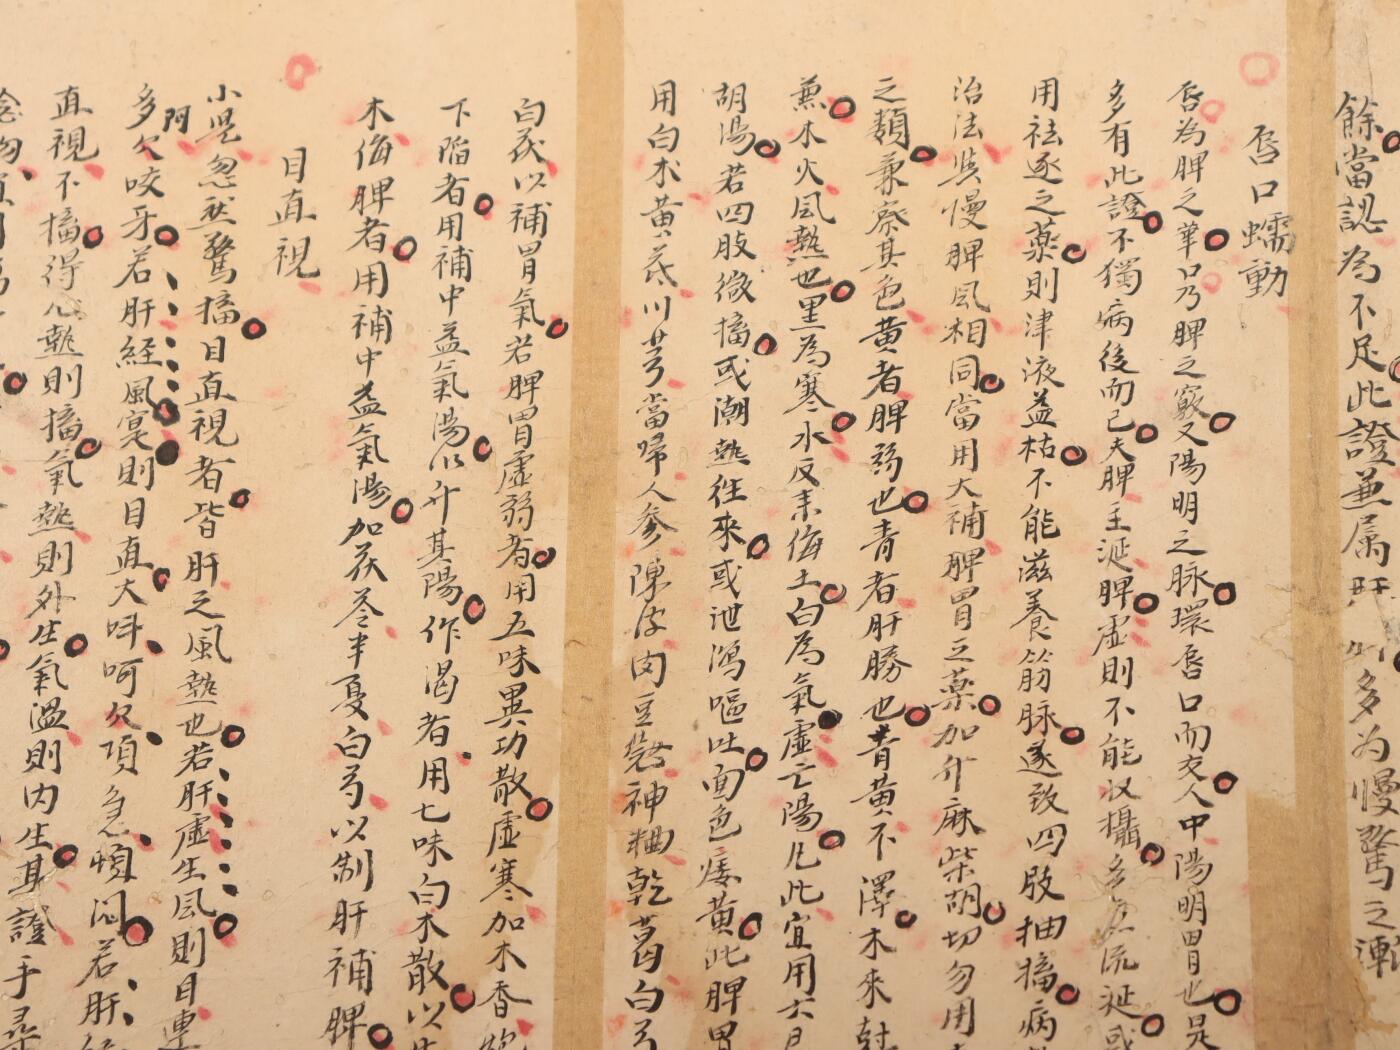 餘當認為不足此證兼属肝 多為慢驚之漸
唇口蠕動
唇為脾之華口乃脾之竅又陽明之脉環唇口而交人中陽明胃也是
多有此證不獨病後而已夫脾主涎脾虛則不能收攝多為流涎或
用祛逐之薬則津液益枯不能滋養筋脉遂致四肢抽搐病
治法與慢脾風相同當用大補脾胃之薬加升麻柴胡切勿用
之類兼察其色黃者脾弱也青者肝勝也青黃不澤木來尅
兼木火風熱也黑為寒水反来侮土白為氣虛亡陽凡此宜用六
胡湯若四肢微搐或潮熱往來或泄瀉嘔吐面色痿黃此脾胃
用白术黃茋川芎當㱕人參陳皮肉豆蔻神粬乾葛白芍
白茯以補胃氣若脾胃虛弱者用五味異功散虛寒加木香炮
下陷者用補中益氣湯以升其陽作渴者用七味白木散以生
木侮脾者用補中益氣湯加茯苓半夏白芍以制肝補脾
目直視
小児忽然驚搐目直視者皆肝之風熱也若肝虛生風則目連
呵
多欠咬牙若肝経風実則目直大呌呵欠項急頓悶若肝
直視不搐得心熱則搐氣熱則外生氣溫則內生其證手尋